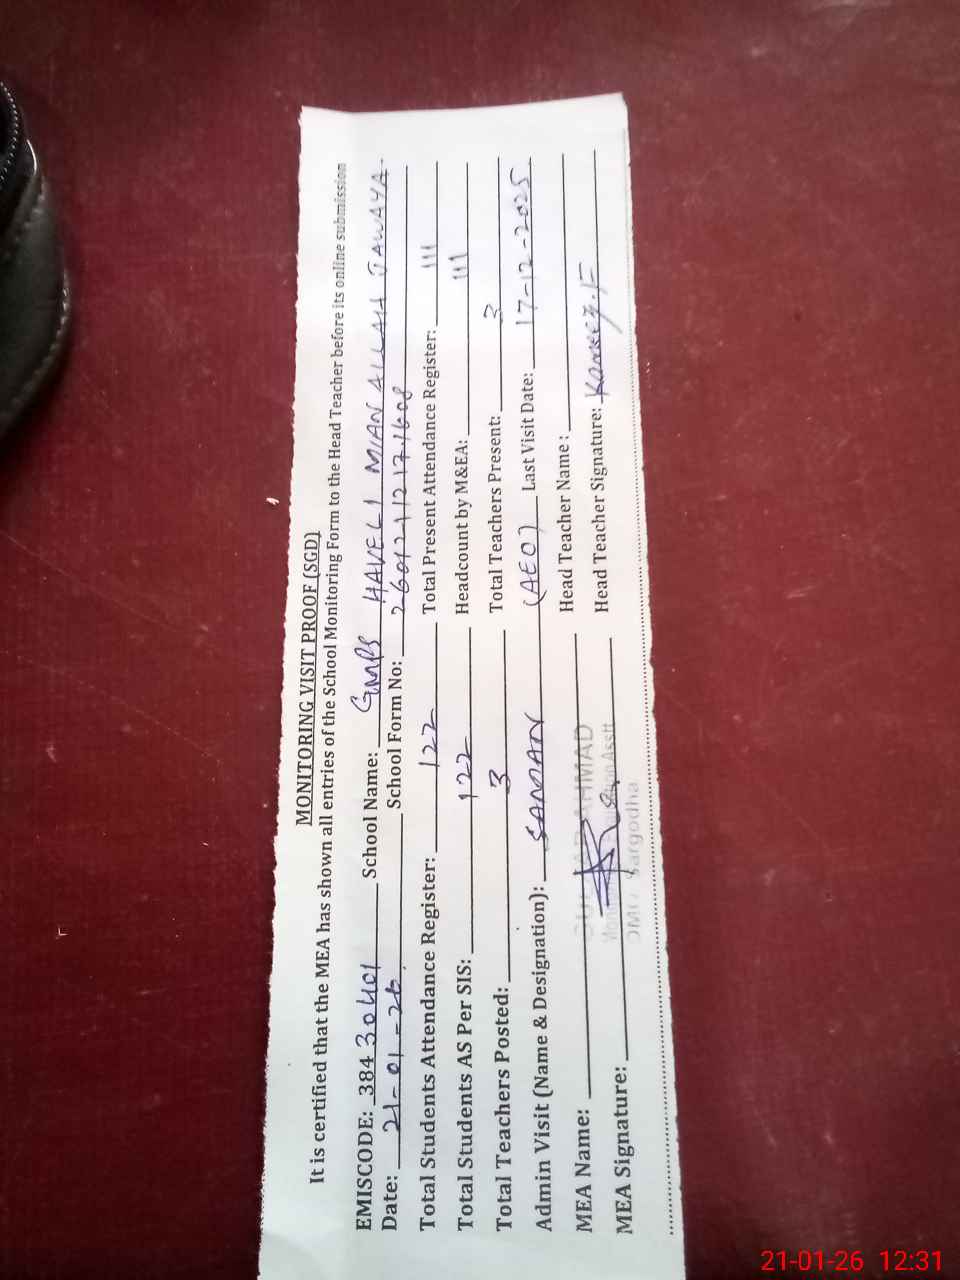 MONITORING VISIT PROOF (SGD)
It is certified that the MEA has shown all entries of the School Monitoring Form to the Head Teacher before its online submission
EMISCODE: 38430401 School Name: GMPS HAVELI MIAN ALLAH JAWAYA
Date: 21-01-26 School Form No: 26012412171608
Total Students Attendance Register: 122 Total Present Attendance Register: 111
Total Students AS Per SIS: 122 Headcount by M&EA: 111
Total Teachers Posted: 3 Total Teachers Present: 3
Admin Visit (Name & Designation): SAMAN (AEO) Last Visit Date: 17-12-2025
MEA Name: AHMAD Head Teacher Name:
MEA Signature: Head Teacher Signature:
Sargodha
21-01-26 12:31